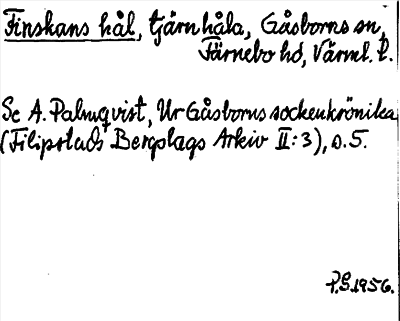 Finskans hål, tjärnhåla, Gåsborns sn,
Färnebo hd, Värml. l.
Se A. Palmqvist, Ur Gåsborns sockenkrönika
(Filipstads Bergslags Arkiv II:3), s. 5.
P.G. 1956.